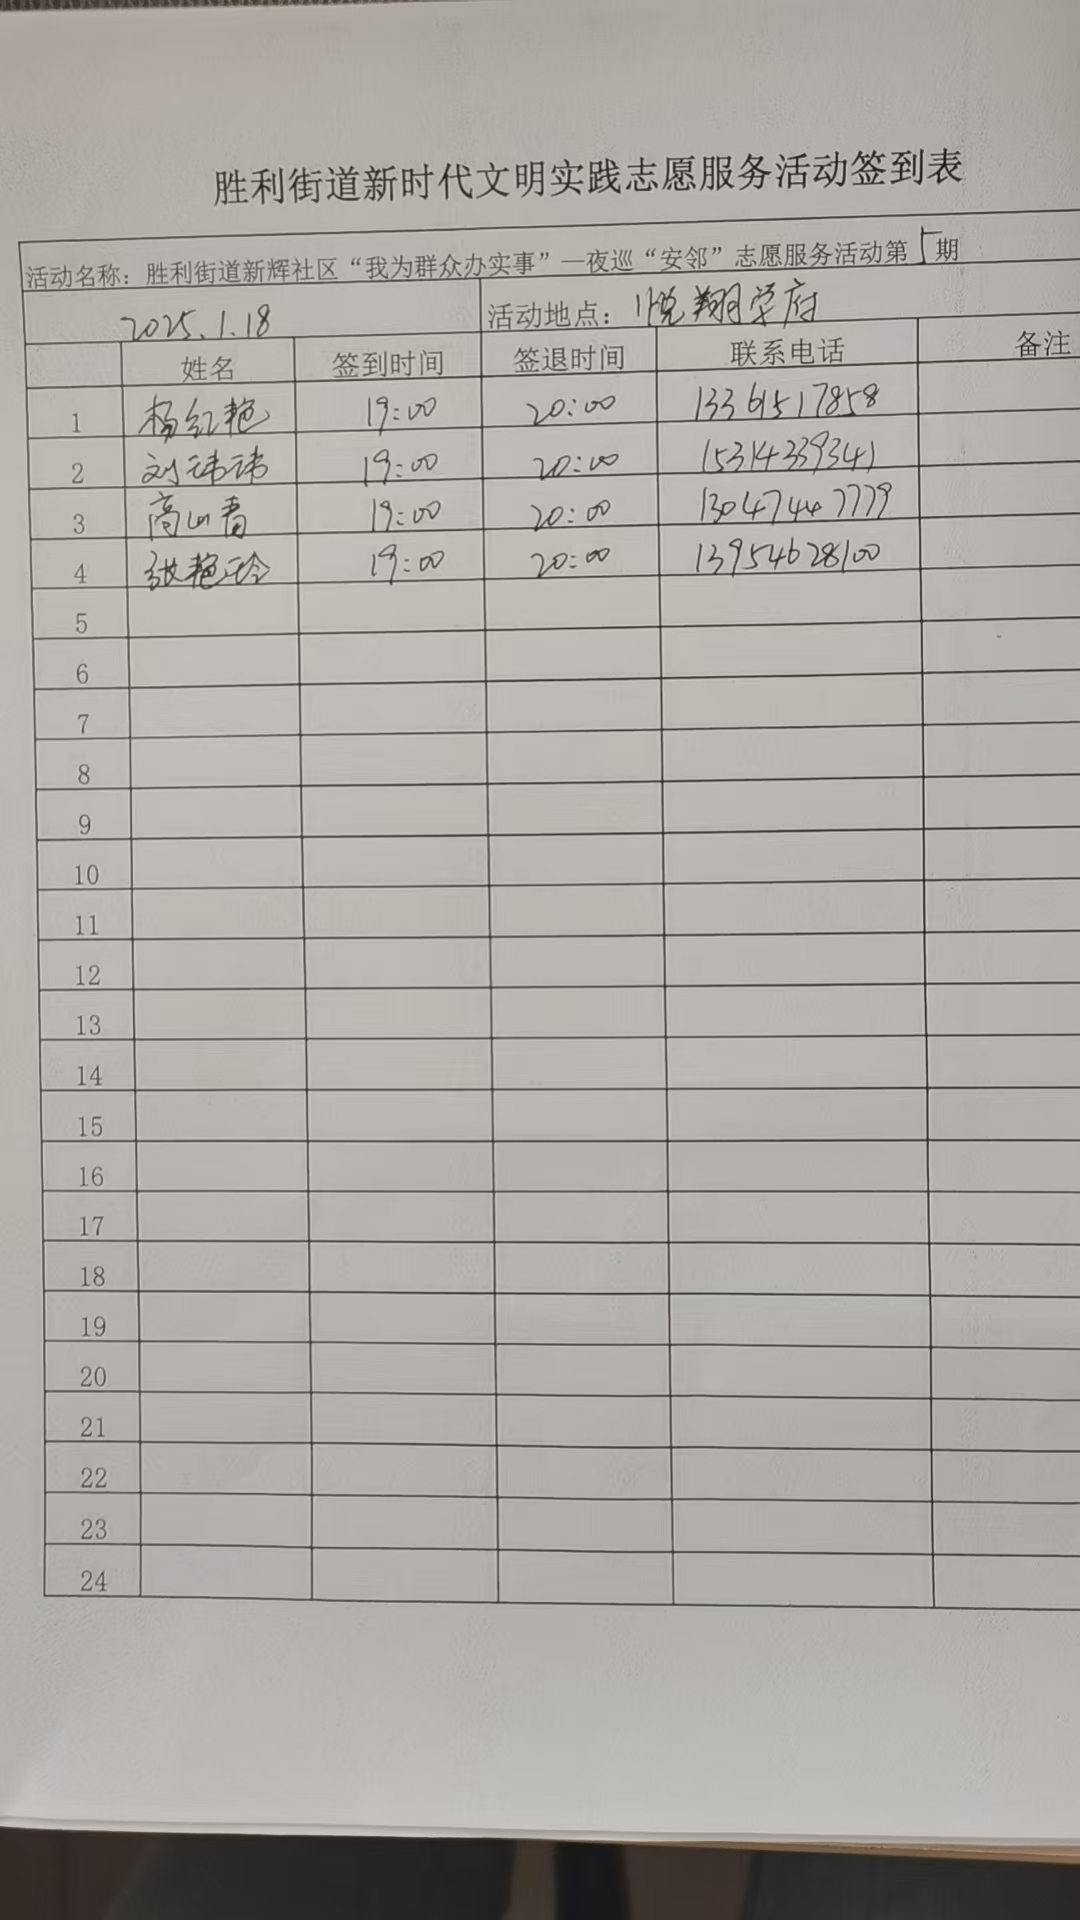 胜利街道新时代文明实践志愿服务活动签到表
活动名称：胜利街道新辉社区“我为群众办实事”—夜巡“安邻”志愿服务活动第5期
2025.1.18 活动地点：悦翔学府
姓名 签到时间 签退时间 联系电话 备注
1 杨红艳 19:00 20:00 13361517858
2 刘玮玮 19:00 20:00 15314339341
3 高山春 19:00 20:00 13047447779
4 张艳玲 19:00 20:00 13954628100
5
6
7
8
9
10
11
12
13
14
15
16
17
18
19
20
21
22
23
24